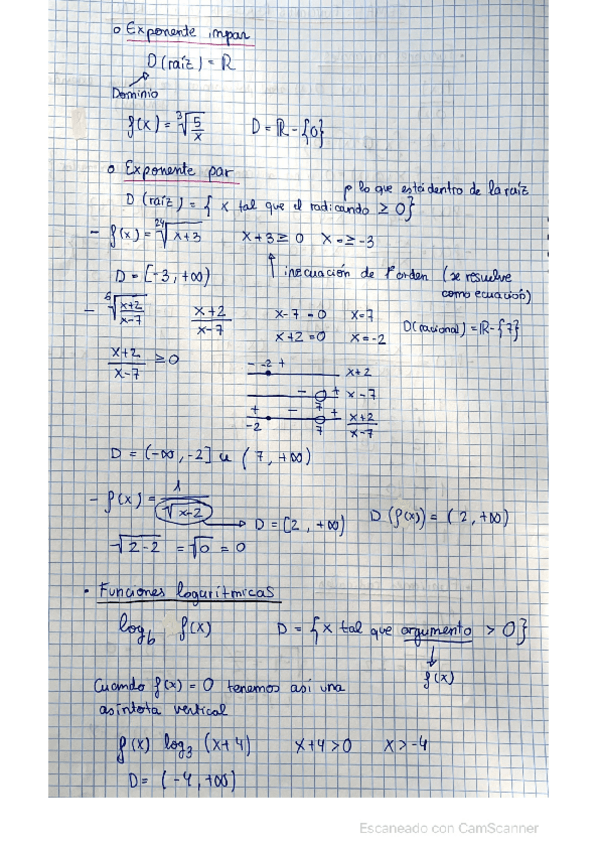 o Exponente impar
D(raíz) = ℝ
Dominio
f(x) = ∛(5/x) D = ℝ - {0}
o Exponente par
lo que está dentro de la raíz
D (raíz) = { x tal que el radicando ≥ 0}
- f(x) = ²⁴√(x+3) x+3 ≥ 0 x ≥ -3
D = [-3, +∞) ↑ inecuación de 1º orden (se resuelve
como ecuación)
- ⁶√((x+2)/(x-7)) (x+2)/(x-7) x-7 = 0 x=7
x+2=0 x=-2 D(racional) = ℝ-{7}
(x+2)/(x-7) ≥ 0
- -2 + x+2
- 7 + x-7
+ -2 - 7 + (x+2)/(x-7)
D = (-∞, -2] u (7, +∞)
- f(x) = 1/√(x-2) → D = [2, +∞) D (f(x)) = (2, +∞)
√(2-2) = √0 = 0
• Funciones logarítmicas
log_b f(x) D = { x tal que argumento > 0}
↓
f(x)
Cuando f(x) = 0 tenemos así una
asíntota vertical
f(x) log₃ (x+4) x+4>0 x>-4
D = (-4, +∞)
Escaneado con CamScanner